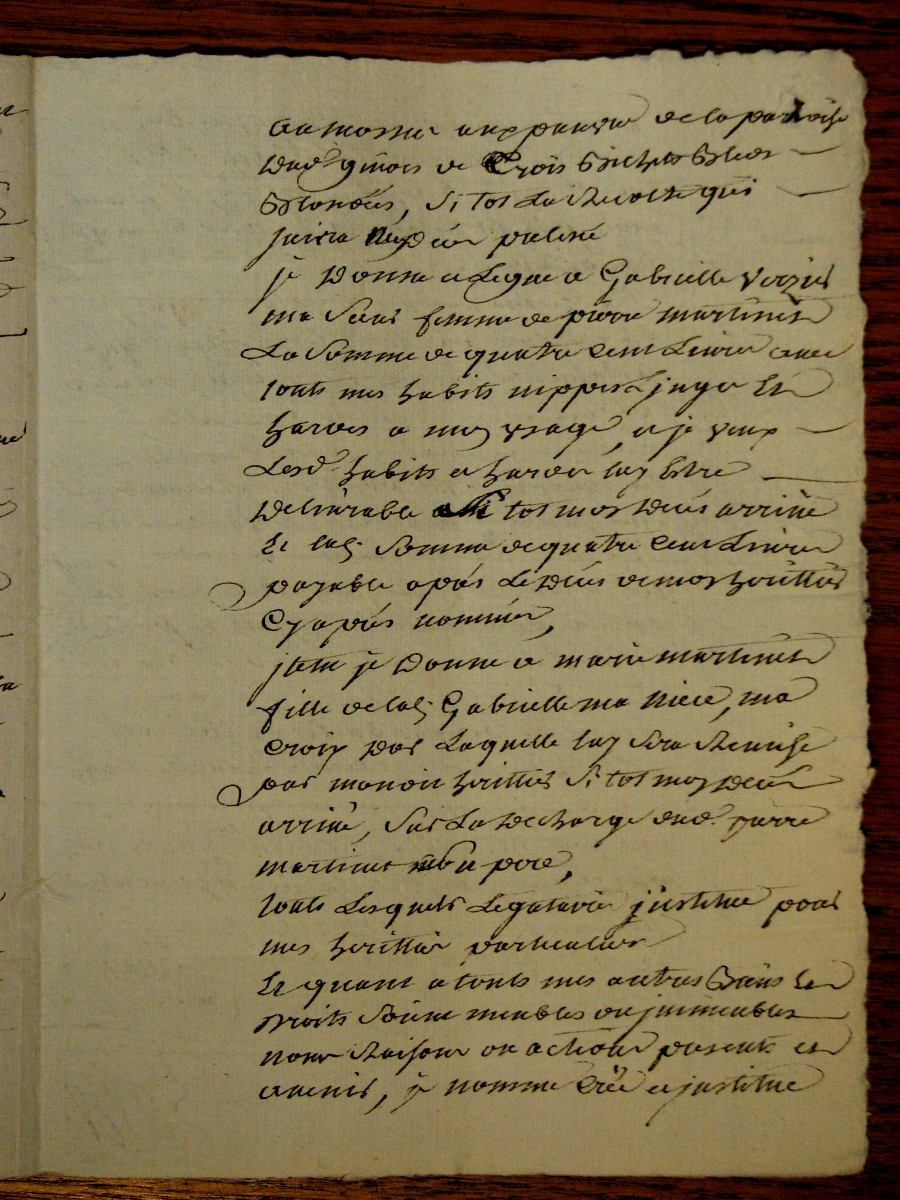 aumosner aux pauvre de la parroisse
dud. de Trois Bichets Bleds
Blondés, si tot la Recolte qui
suivra deces
je Donne et Legue a Gabrielle Verzier
ma Seur femme de pierre martinet
La Somme de quatre cent Livres avec
touts mes habits nippes Linges Et
hardes a mon usage, et je veux
Lesd. habits et hardes luy Estre
Delivrable si tot mon Deces arrivé
Et lad. Somme de quatre cent Livres
payable apres Le Deces de mon heritier
Cy apres nommé,
jtem je Donne a marie martinet
fille de lad. Gabrielle ma niece, ma
croix d'or Laquelle luy sera Remise
par mon heritier Si tot mon Deces
arrivé, sur La Decharge dud. pierre
martinet son pere,
touts Lesquels Legataires j'institue pour
mes heritier particulier
Et quant a touts mes autres Biens Et
Droits Soient meubles ou jmmeubles
noms Raisons ou actions presents et
avenir, je nomme crée et jnstitue